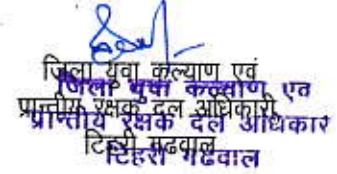 जिला युवा कल्याण एवं
जिला युवा कल्याण एव
प्रान्तीय रक्षक दल अधिकारी,
प्रान्तीय रक्षक दल अधिकार
टिहरी गढवाल
टिहरी गढवाल